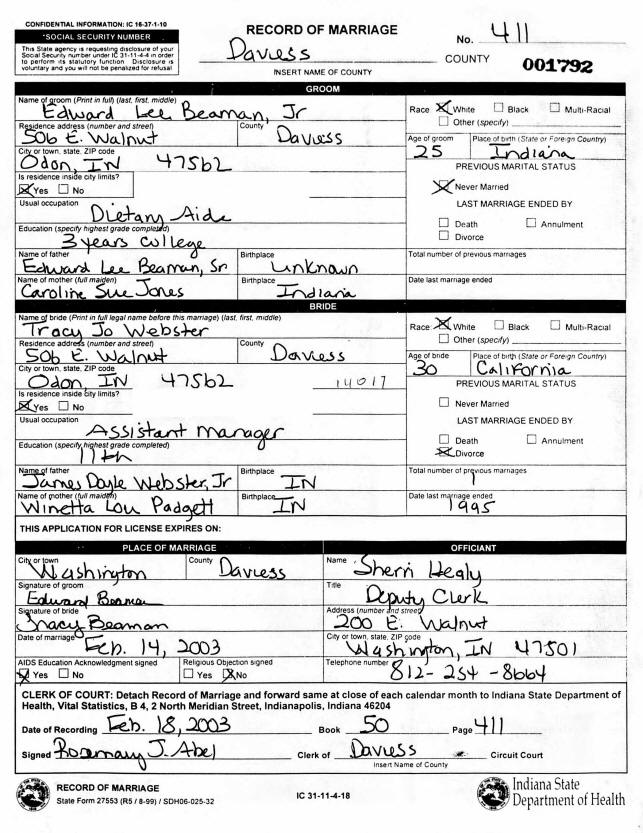 CONFIDENTIAL INFORMATION: IC 16-37-1-10
*SOCIAL SECURITY NUMBER
This State agency is requesting disclosure of your
Social Security number under IC 31-11-4-4 in order
to perform its statutory function. Disclosure is
voluntary and you will not be penalized for refusal
RECORD OF MARRIAGE
Daviess COUNTY
INSERT NAME OF COUNTY
No. 411
001792
GROOM
Name of groom (Print in full) (last, first, middle)
Edward Lee Beaman, Jr
Race: X White Black Multi-Racial
Other (specify)
Residence address (number and street) County
506 E. Walnut Daviess
Age of groom Place of birth (State or Foreign Country)
25 Indiana
City or town, state, ZIP code
Odon, IN 47562
PREVIOUS MARITAL STATUS
Is residence inside city limits?
X Yes No
X Never Married
LAST MARRIAGE ENDED BY
Usual occupation
Dietary Aide
Death Annulment
Divorce
Education (specify highest grade completed)
3 years college
Name of father Birthplace
Edward Lee Beaman, Sr Unknown
Total number of previous marriages
Name of mother (full maiden) Birthplace
Caroline Sue Jones Indiana
Date last marriage ended
BRIDE
Name of bride (Print in full legal name before this marriage) (last, first, middle)
Tracy Jo Webster
Race: X White Black Multi-Racial
Other (specify)
Residence address (number and street) County
506 E. Walnut Daviess
Age of bride Place of birth (State or Foreign Country)
30 California
City or town, state, ZIP code
Odon, IN 47562 14017
PREVIOUS MARITAL STATUS
Is residence inside city limits?
X Yes No
Never Married
LAST MARRIAGE ENDED BY
Usual occupation
Assistant Manager
Death Annulment
X Divorce
Education (specify highest grade completed)
11th
Name of father Birthplace
James Doyle Webster, Jr IN
Total number of previous marriages
1
Name of mother (full maiden) Birthplace
Winetta Lou Padgett IN
Date last marriage ended
1995
THIS APPLICATION FOR LICENSE EXPIRES ON:
PLACE OF MARRIAGE
City or town County
Washington Daviess
Signature of groom
Edward Beaman
Signature of bride
Tracy Beaman
Date of marriage
Feb. 14, 2003
AIDS Education Acknowledgment signed Religious Objection signed
X Yes No Yes X No
OFFICIANT
Name
Sherri Healy
Title
Deputy Clerk
Address (number and street)
200 E. Walnut
City or town, state, ZIP code
Washington, IN 47501
Telephone number
812-254-8664
CLERK OF COURT: Detach Record of Marriage and forward same at close of each calendar month to Indiana State Department of
Health, Vital Statistics, B 4, 2 North Meridian Street, Indianapolis, Indiana 46204
Date of Recording Feb. 18, 2003 Book 50 Page 411
Signed Rosemary J. Abel Clerk of Daviess Circuit Court
Insert Name of County
RECORD OF MARRIAGE
State Form 27553 (R5 / 8-99) / SDH06-025-32
IC 31-11-4-18
Indiana State
Department of Health